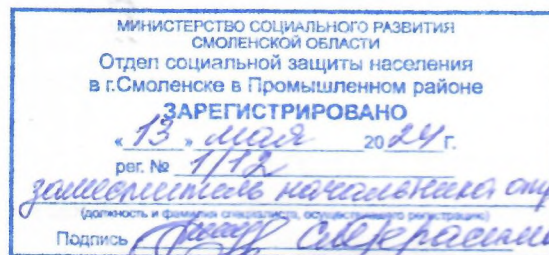 МИНИСТЕРСТВО СОЦИАЛЬНОГО РАЗВИТИЯ
СМОЛЕНСКОЙ ОБЛАСТИ
Отдел социальной защиты населения
в г.Смоленске в Промышленном районе
ЗАРЕГИСТРИРОВАНО
« 13 » мая 2024 г.
рег. № 1/12
заместитель начальника отд
(должность и фамилия специалиста, осуществившего регистрацию)
Подпись